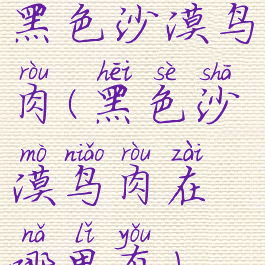 黑色沙漠鸟
ròu hēi sè shā
肉(黑色沙
mò niǎo ròu zài
漠鸟肉在
nǎ lǐ yǒu
哪里有)